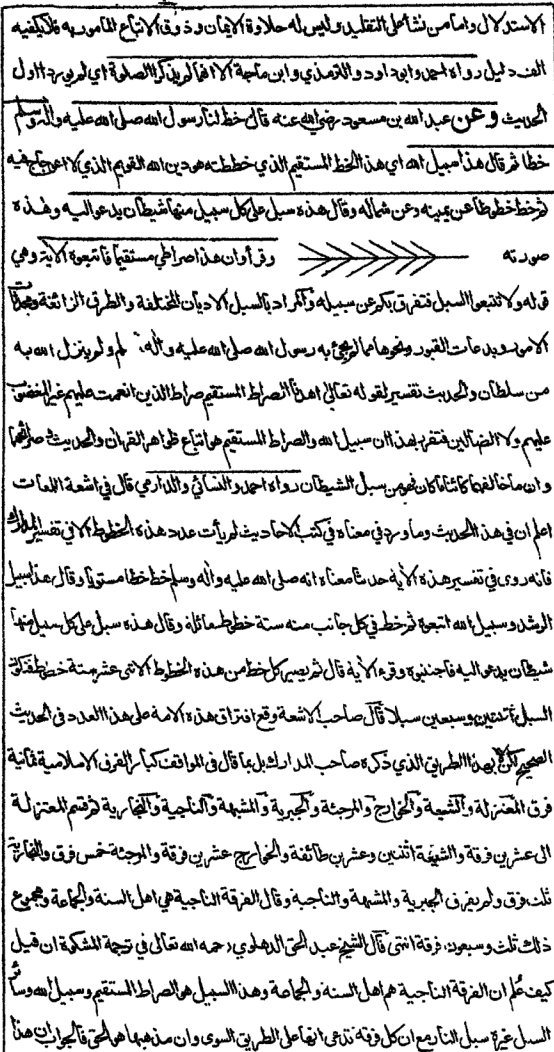 الاستدلال واما من نشأ على التقليد وليس له حلاوة الايمان وذوق الاتباع المأمور به فلا يكفيه
الف دليل رواه احمد وابوداود والترمذي وابن ماجة الا انهما لم يذكرا الصلوة اي لم يوردا اول
الحديث وعن عبد الله بن مسعود رضي الله عنه قال خط لنا رسول الله صلى الله عليه وآله وسلم
خطا ثم قال هذا سبيل الله اي هذا الخط المستقيم الذي خططته هو دين الله القويم الذي لا اعوجاج فيه
ثم خط خطوطا عن يمينه وعن شماله وقال هذه سبل على كل سبيل منها شيطان يدعو اليه وهذه
صورته وقرأ وان هذا صراطي مستقيما فاتبعوه الاية وهي
قوله ولا تتبعوا السبل فتفرق بكم عن سبيله والمراد بالسبل الاديان المختلفة والطرق الزائغة ومحدثات
الامور وبدعات القبور ونحوها مما لم يجئ به رسول الله صلى الله عليه وآله وسلم ولم ينزل الله به
من سلطان والحديث تفسير لقوله تعالى اهدنا الصراط المستقيم صراط الذين انعمت عليهم غير المغضوب
عليهم ولا الضالين فتقرر بهذا ان سبيل الله والصراط المستقيم هو اتباع ظواهر القران والحديث
وان ما خالفهما كائنا ما كان فهو من سبل الشيطان رواه احمد والنسائي والدارمي قال في اشعة اللمعات
اعلم ان في هذا الحديث وما ورد في معناه في كتب الاحاديث لم يأت عدد هذه الخطوط الا في تفسير المدارك
فانه روى في تفسير هذه الاية حديثا معناه انه صلى الله عليه وآله وسلم خط خطا مستويا وقال هذا سبيل
الرشد وسبيل الله اتبعوه ثم خط في كل جانب منه ستة خطوط مائلة وقال هذه سبل على كل سبيل منها
شيطان يدعو اليه فاجتنبوه وقرء الاية قال ثم يصير كل خط من هذه الخطوط الاثنى عشر ستة خطوط فتكون
السبل اثنتين وسبعين سبيلا قال صاحب الاشعة وقع افتراق هذه الامة على هذا العدد في الحديث
الصحيح لكن لا بهذا الطريق الذي ذكره صاحب المدارك بل بما قال في المواقف كبار الفرق الاسلامية ثمانية
فرق المعتزلة والشيعة والخوارج والمرجئة والجبرية والمشبهة والناجية والنجارية ثم قسم المعتزلة
الى عشرين فرقة والشيعة اثنتين وعشرين طائفة والخوارج عشرين فرقة والمرجئة خمس فرق والنجارية
ثلث فرق ولم يفرق الجبرية والمشبهة والناجية وقال الفرقة الناجية هي اهل السنة والجماعة ومجموع
ذلك ثلث وسبعون فرقة انتهى قال الشيخ عبد الحق الدهلوي رحمه الله تعالى في ترجمة المشكوة ان قيل
كيف علم ان الفرقة الناجية هم اهل السنة والجماعة وهذا السبيل هو الصراط المستقيم وسبيل الله وسائر
السبل غيره سبل النار مع ان كل فرقة تدعى انها على الطريق السوى وان مذهبها هو الحق فالجواب ان هذا